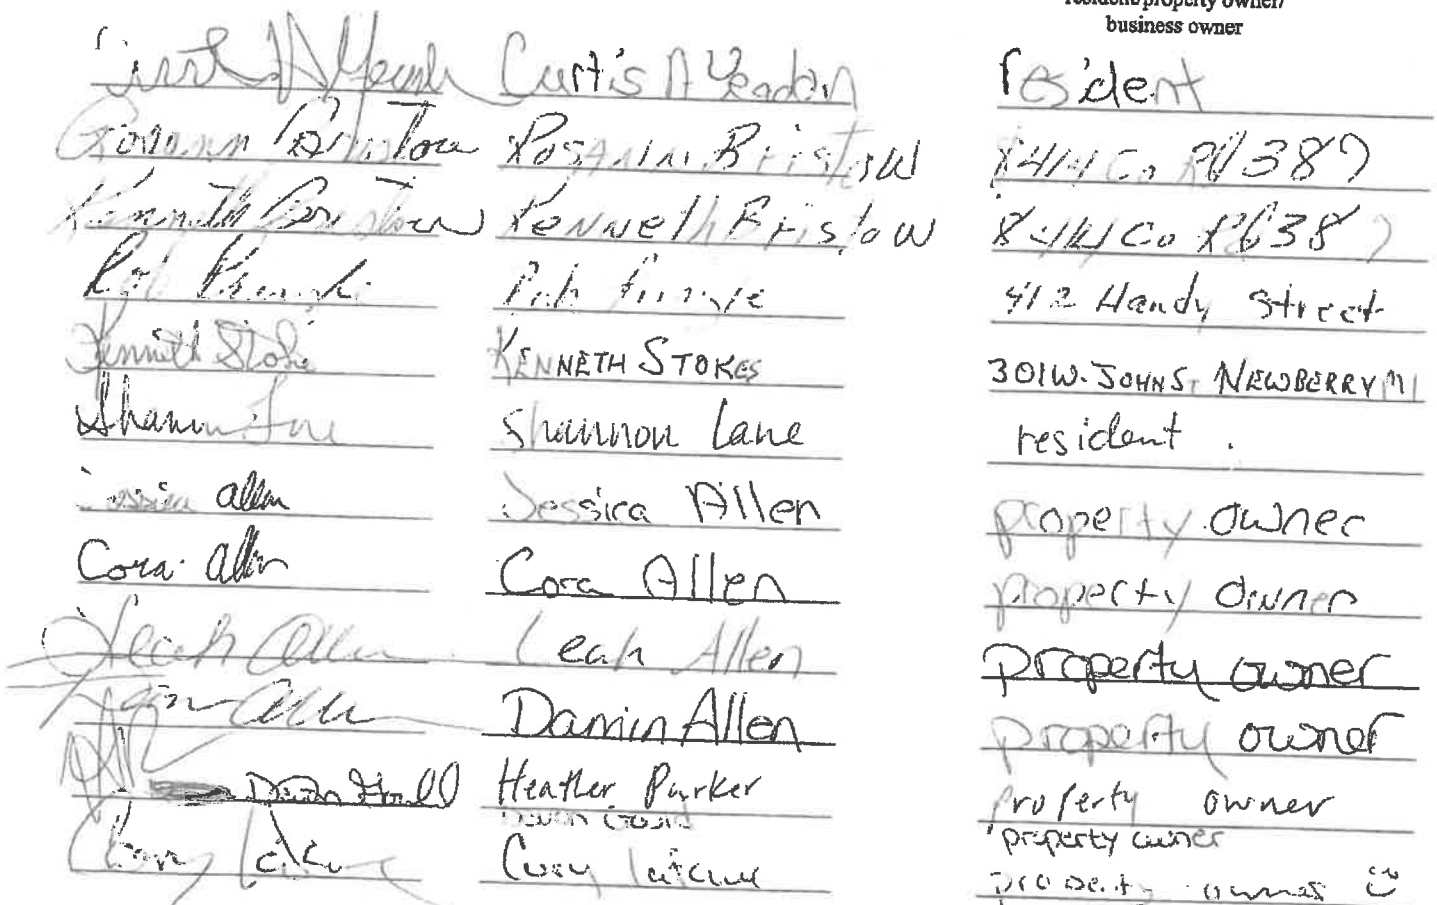 resident/property owner/
business owner
Curtis A Yeadon resident
Rosann Bristow Rosann Bristow 8414 Co Rd 387
Kenneth Bristow Kenneth Bristow 8414 Co Rd 387
Rob 412 Handy Street
Kenneth Stokes KENNETH STOKES 301 W. JOHN ST NEWBERRY MI
Shannon Lane Shannon Lane resident
Jessica Allen Jessica Allen property owner
Cora Allen Cora Allen property owner
Leah Allen Leah Allen property owner
Allen Damin Allen property owner
Heather Parker property owner
Devon Gould Devon Gould property owner
Cory property owner